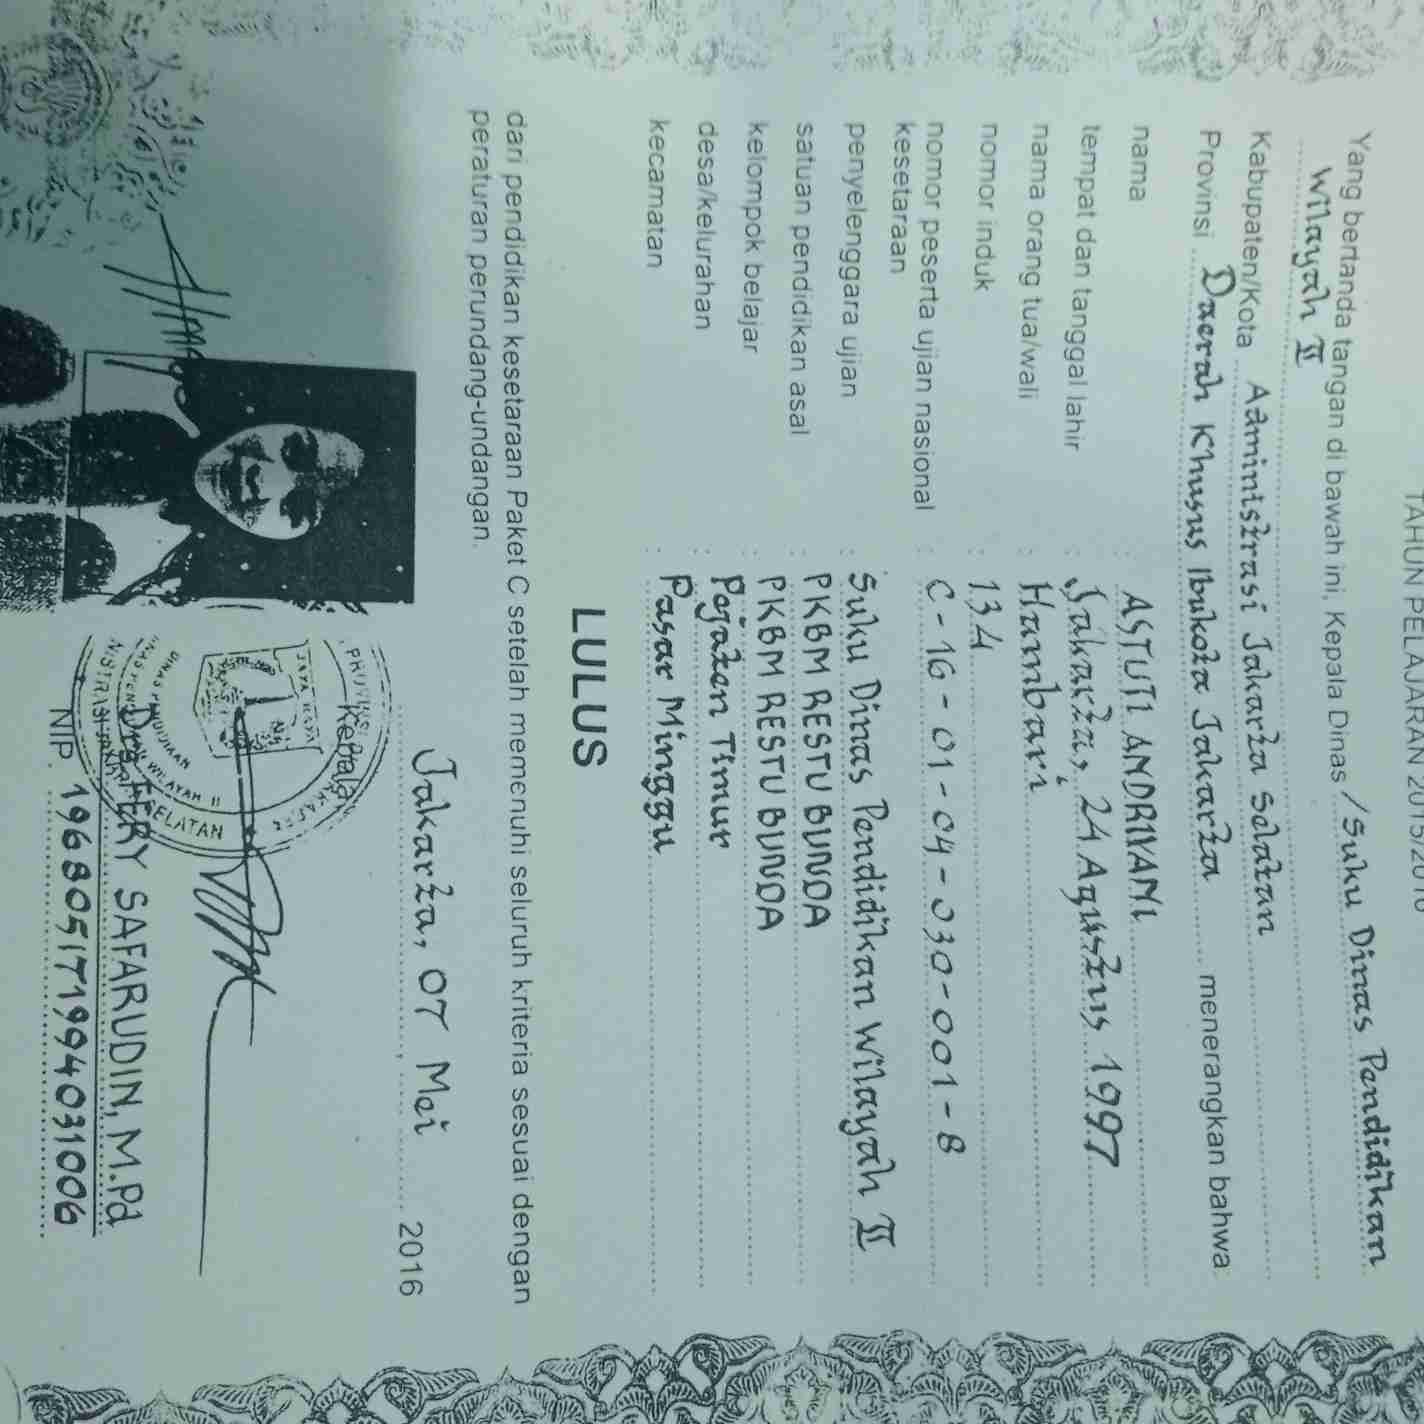 TAHUN PELAJARAN 2015/2016
Yang bertanda tangan di bawah ini, Kepala Dinas / Suku Dinas Pendidikan
Wilayah II
Kabupaten/Kota Administrasi Jakarta Selatan
Provinsi Daerah Khusus Ibukota Jakarta menerangkan bahwa
nama : ASTUTI ANDRIYANI
tempat dan tanggal lahir : Jakarta, 24 Agustus 1997
nama orang tua/wali : Hambari
nomor induk : 134
nomor peserta ujian nasional : C-16-01-04-030-001-8
kesetaraan
penyelenggara ujian : Suku Dinas Pendidikan Wilayah II
satuan pendidikan asal : PKBM RESTU BUNDA
kelompok belajar : PKBM RESTU BUNDA
desa/kelurahan : Pejaten Timur
kecamatan : Pasar Minggu
LULUS
dari pendidikan kesetaraan Paket C setelah memenuhi seluruh kriteria sesuai dengan
peraturan perundang-undangan.
Jakarta, 07 Mei 2016
Kepala
JAYA RAYA
DINAS PENDIDIKAN
WILAYAH II
SELATAN
Drs. FERY SAFARUDIN, M.Pd
NIP. 196805171994031006